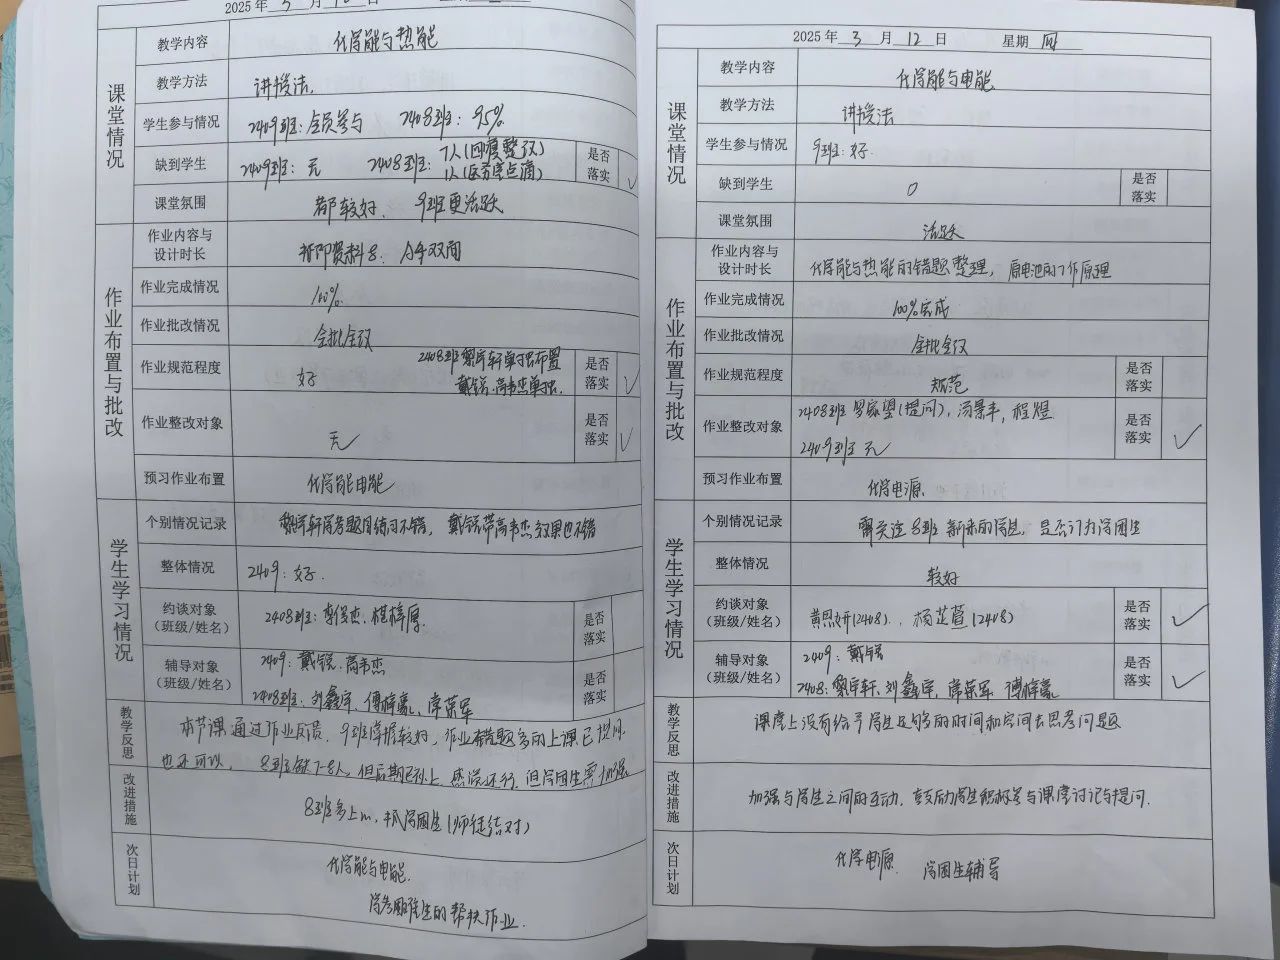 2025年 3 月 12 日
课堂情况
教学内容 化学能与热能
教学方法 讲授法.
学生参与情况 2409班: 全员参与 2408班: 95%
缺到学生 2409班: 无 2408班: 7人(回寝整改)
1人(医务室点滴)
是否落实 ✓
课堂氛围 都较好、9班更活跃
作业布置与批改
作业内容与设计时长 A4双面
作业完成情况 100%.
作业批改情况 全批全改
作业规范程度 好 2408班黎宇轩单独布置
戴锐、高韦杰单独.
是否落实 ✓
作业整改对象 无 是否落实 ✓
预习作业布置 化学能电能
学生学习情况
个别情况记录 黎宇轩简易题目练习不错, 戴锐带高韦杰效果也不错
整体情况 2409: 好.
约谈对象(班级/姓名) 2408班: 李俊杰、 是否落实
辅导对象(班级/姓名) 2409: 戴锐、高韦杰
2408班: 刘鑫宇、傅梓豪、常荣军
是否落实
教学反思 本节课通过作业反馈, 9班掌握较好, 作业错题多的上课已提问
也还可以, 8班缺7-8人, 但后期已补上, 感觉还行, 但学困生需加强
改进措施 8班多上m, 抓学困生(师徒结对)
次日计划 化学能与电能.
学考困难生的帮扶作业.
2025年 3 月 12 日 星期 四
课堂情况
教学内容 化学能与电能
教学方法 讲授法
学生参与情况 9班: 好.
缺到学生 0 是否落实
课堂氛围 活跃
作业布置与批改
作业内容与设计时长 化学能与热能的错题整理, 原电池的工作原理
作业完成情况 100%完成
作业批改情况 全批全改
作业规范程度 规范 是否落实
作业整改对象 2408班 罗家望(提问), 汤景丰, 程煜
2409班 无
是否落实 ✓
预习作业布置 化学电源
学生学习情况
个别情况记录 需关注8班新来的学生, 是否订为学困生
整体情况 较好
约谈对象(班级/姓名) 黄思妍(2408)、杨芷萱(2408) 是否落实 ✓
辅导对象(班级/姓名) 2409: 戴锐
2408: 黎宇轩、刘鑫宇、常荣军、傅梓豪
是否落实 ✓
教学反思 课堂上没有给予学生足够的时间和空间去思考问题
改进措施 加强与学生之间的互动, 鼓励学生积极参与课堂讨论与提问.
次日计划 化学电源 学困生辅导